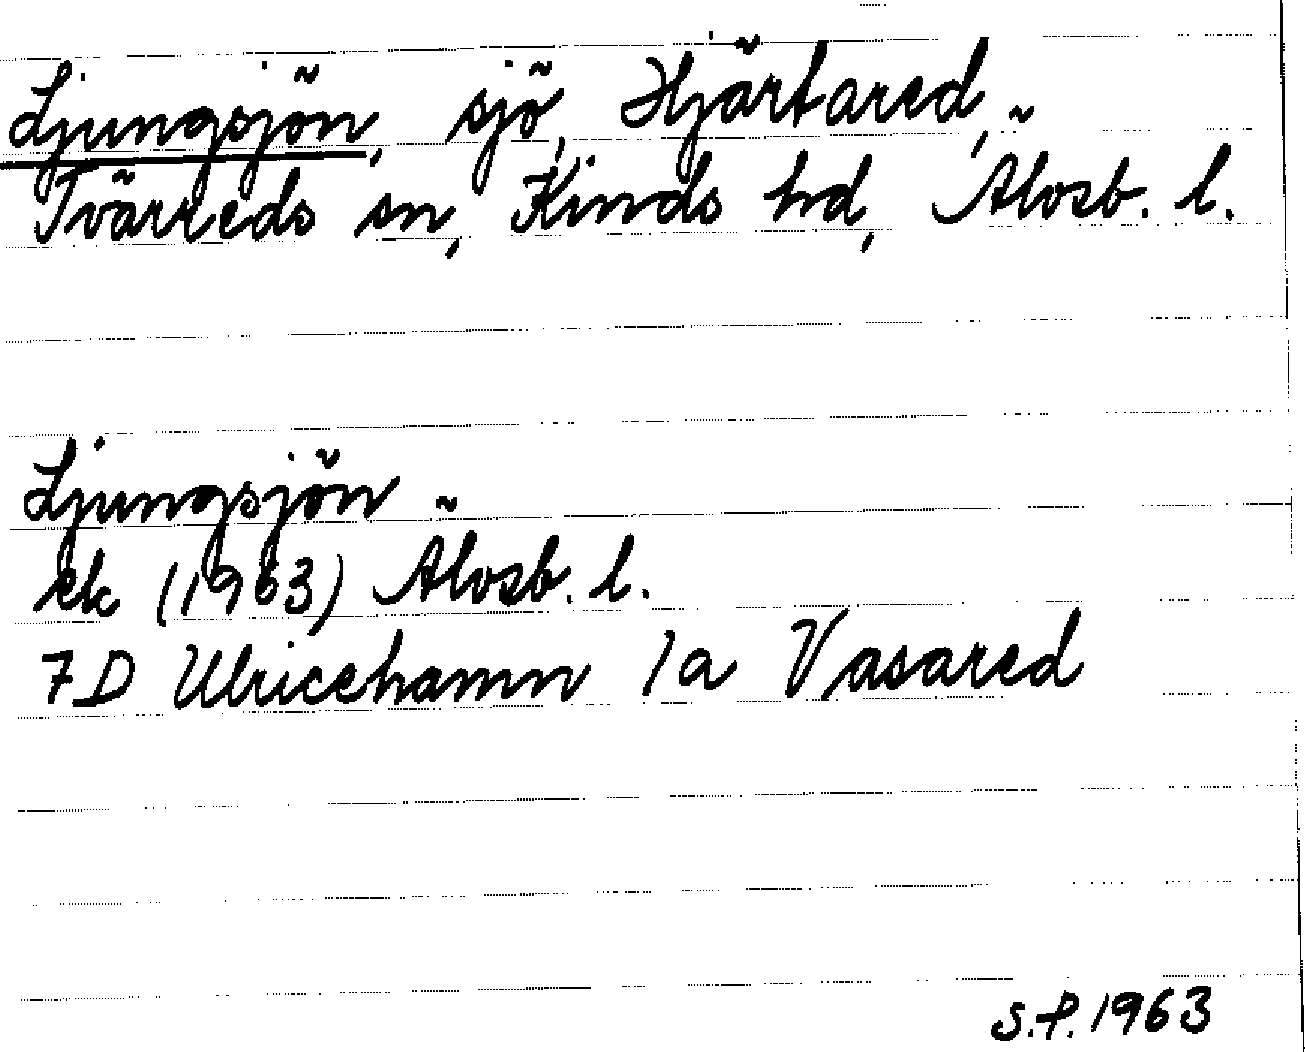 Ljungsjön, sjö, Hjärtared,
Tvärreds sn, Kinds hd, Älvsb. l.
Ljungsjön
ek (1963) Älvsb. l.
7D Ulricehamn 1a Vasared
S.P. 1963